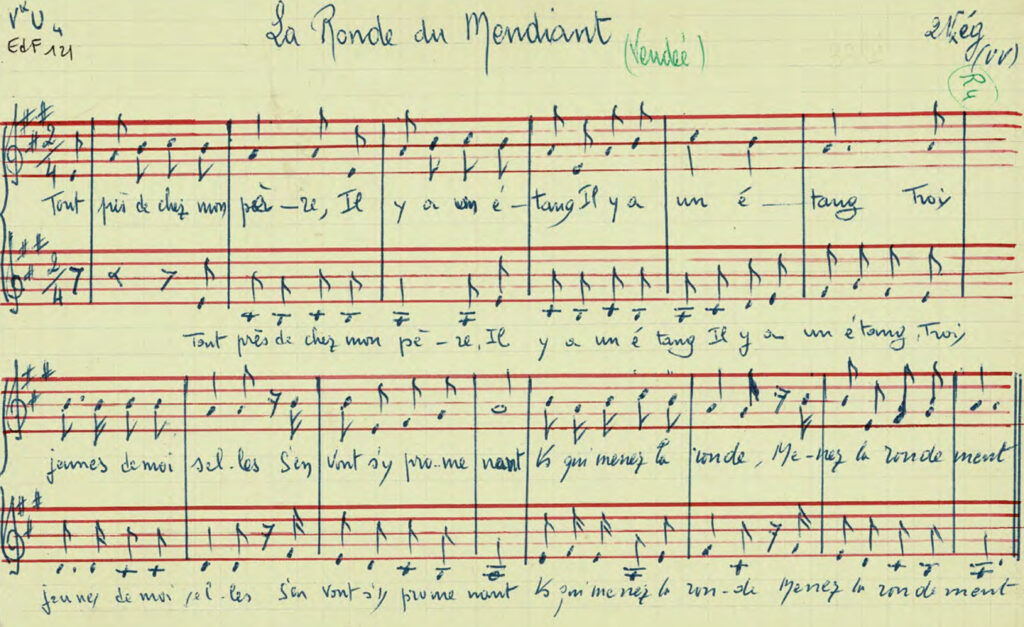 La Ronde du Mendiant
(Vendée)
EdF 121
R4
2/4
Tout près de chez mon pè-re, Il y a un é-tang Il y a un é-tang Trois
2/4
Tout près de chez mon pè-re, Il y a un é tang Il y a un étang, Trois
jeunes demoi sel-les S'en vont s'y pro-me nant Vs qui menez la ronde, Me-nez la ronde ment
jeunes de moi sel-les S'en vont s'y prome nant Vs qui menez la ron-de Menez la ronde ment